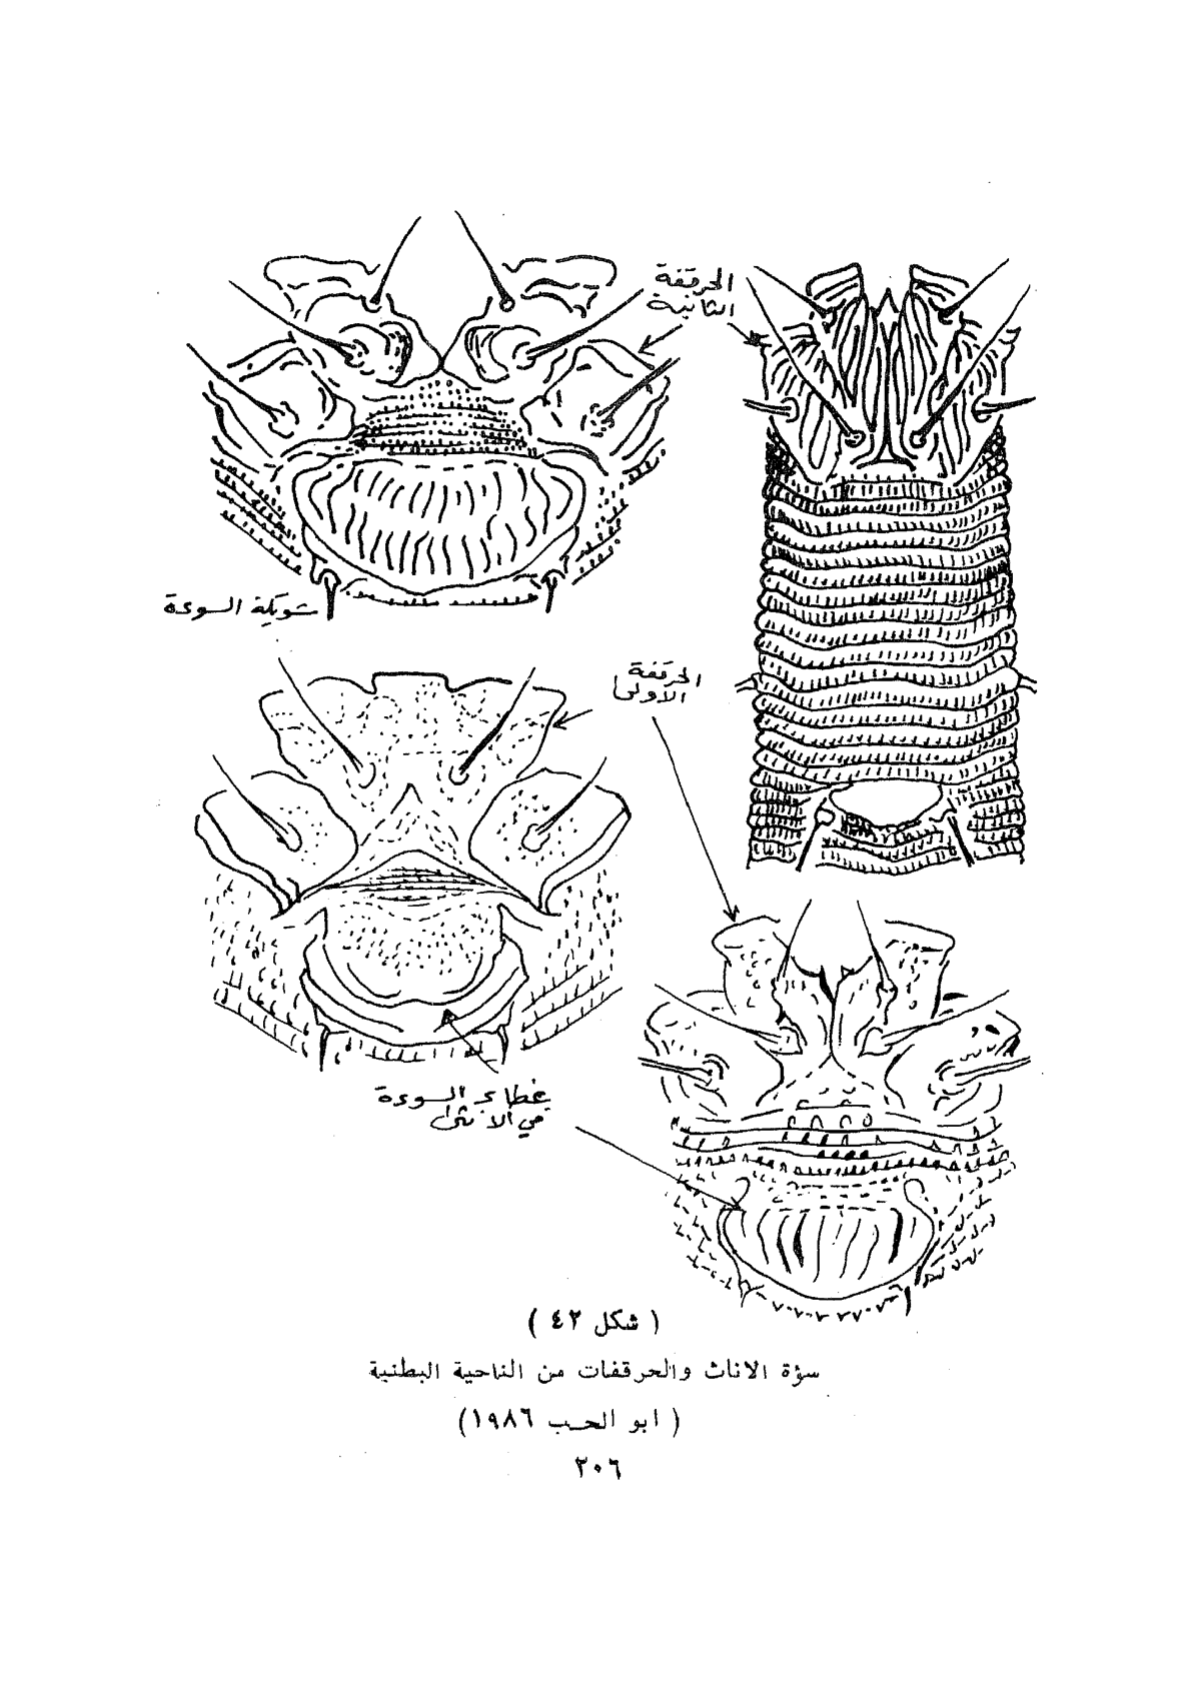 الحرقفة
الثانية
شويكة السوءة
الحرقفة
الاولى
غطاء السوءة
في الانثى
( شكل ٤٢ )
سؤة الاناث والحرقفات من الناحية البطنية
( ابو الحب ١٩٨٦)
٢٠٦